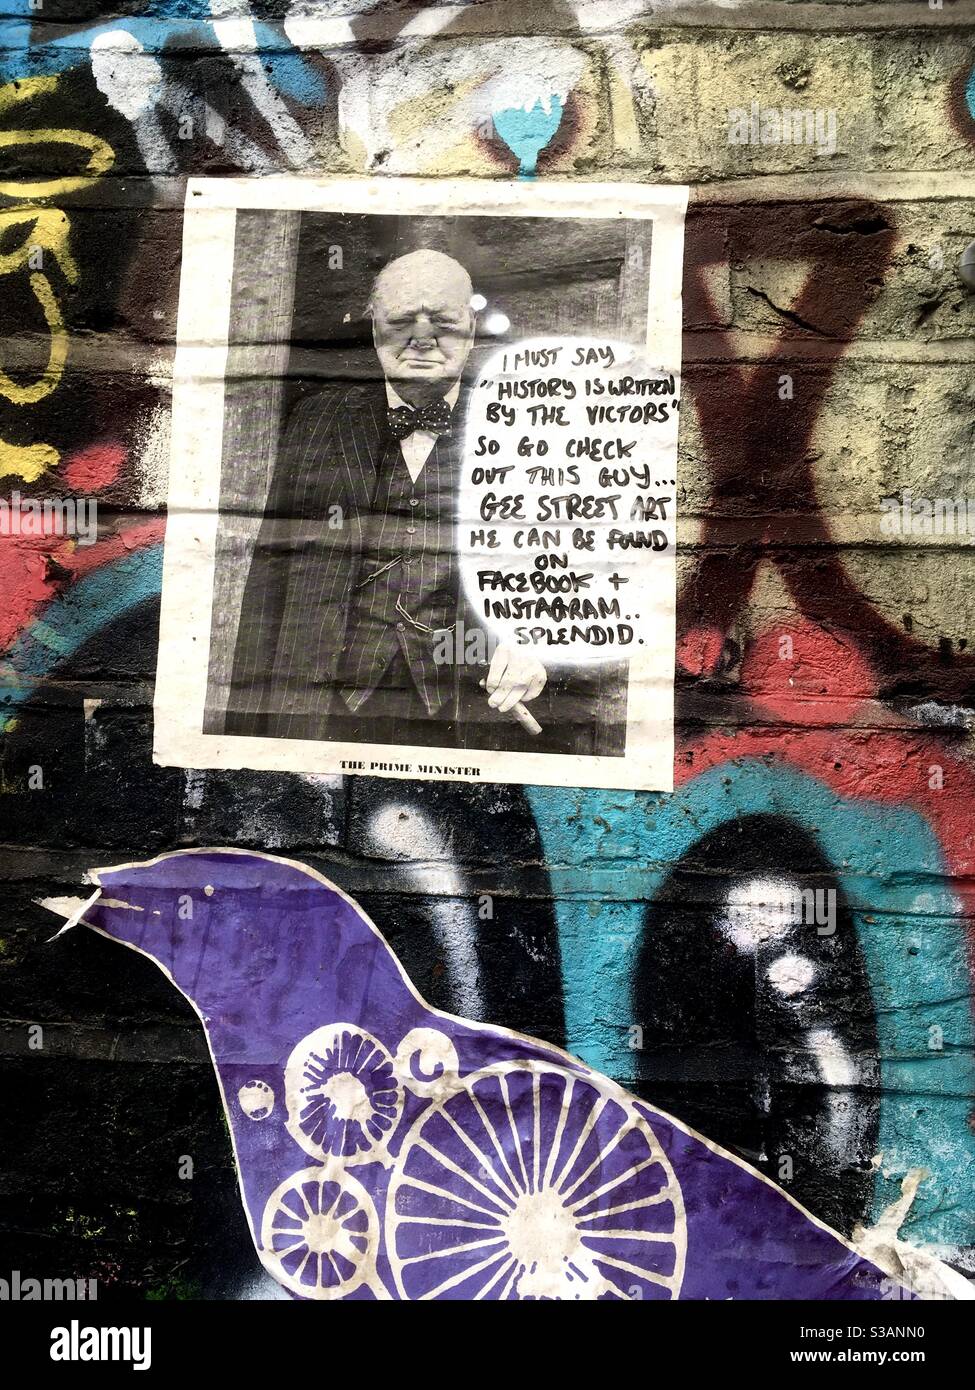 I MUST SAY
"HISTORY IS WRITTEN
BY THE VICTORS"
SO GO CHECK
OUT THIS GUY...
GEE STREET ART
HE CAN BE FOUND
ON
FACEBOOK +
INSTAGRAM..
SPLENDID.
THE PRIME MINISTER
alamy
alamy
Image ID: S3ANN0
www.alamy.com